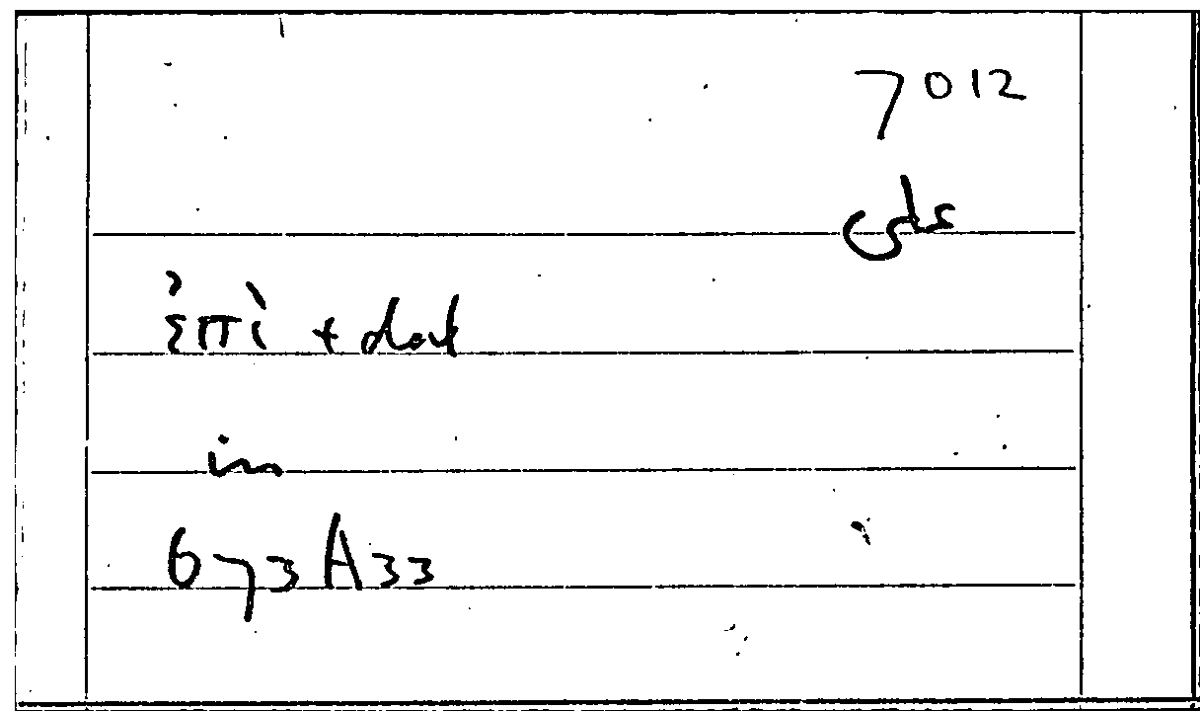 7012
cds
ἐπὶ + dat
in
673A33